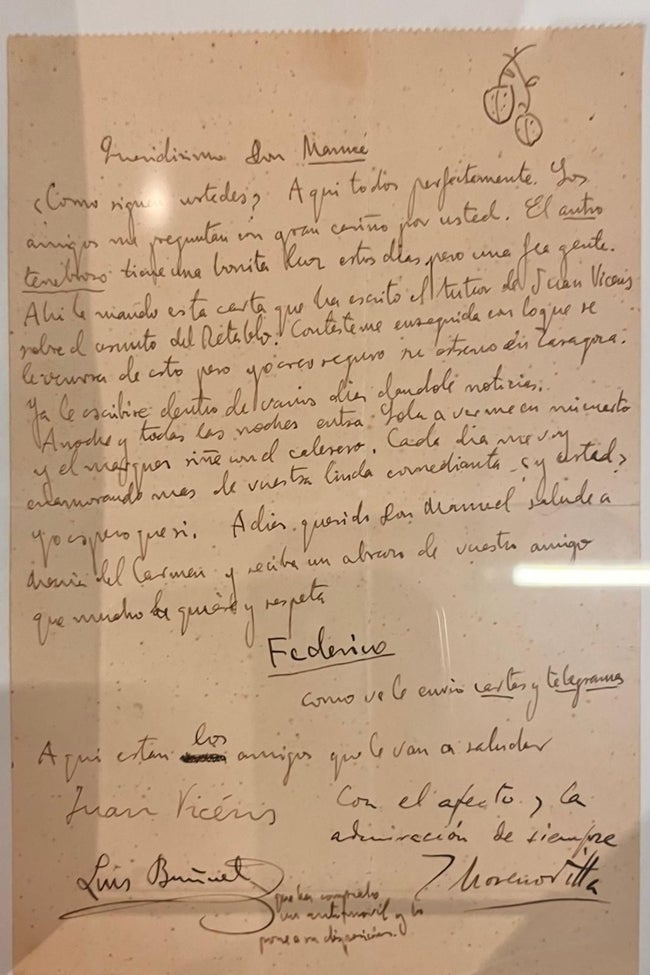 Queridisimo Don Manué
¿Como siguen ustedes? Aqui todos perfectamente. Los
amigos me preguntan con gran cariño por usted. El antro
tenebroso tiene una bonita luz estos dias, pero una fea gente.
Ahi le mando esta carta que ha escrito el tutor de Juan Vicens
sobre el asunto del Retablo. Contesteme enseguida con lo que se
de esto pero yo creo seguro su estreno en Zaragoza.
Ya le escribire dentro de varios dias dandole noticias.
Anoche y todas las noches entra Lola a verme en mi cuarto
y el marques riñe con el calesero. Cada dia me voy
enamorando mas de vuestra linda comedianta ¿y usted?
yo espero que si. Adios querido Don Manuel salude a
Maria del Carmen y reciba un abrazo de vuestro amigo
que mucho le quiere y respeta
Federico
como ve le envio cartas y telegramas
Aqui estan los amigos que le van a saludar
Juan Vicéns
Con el afecto y la
admiración de siempre
J Moreno Villa
Luis Buñuel
que ha comprado
un automóvil y lo
pone a su disposición.